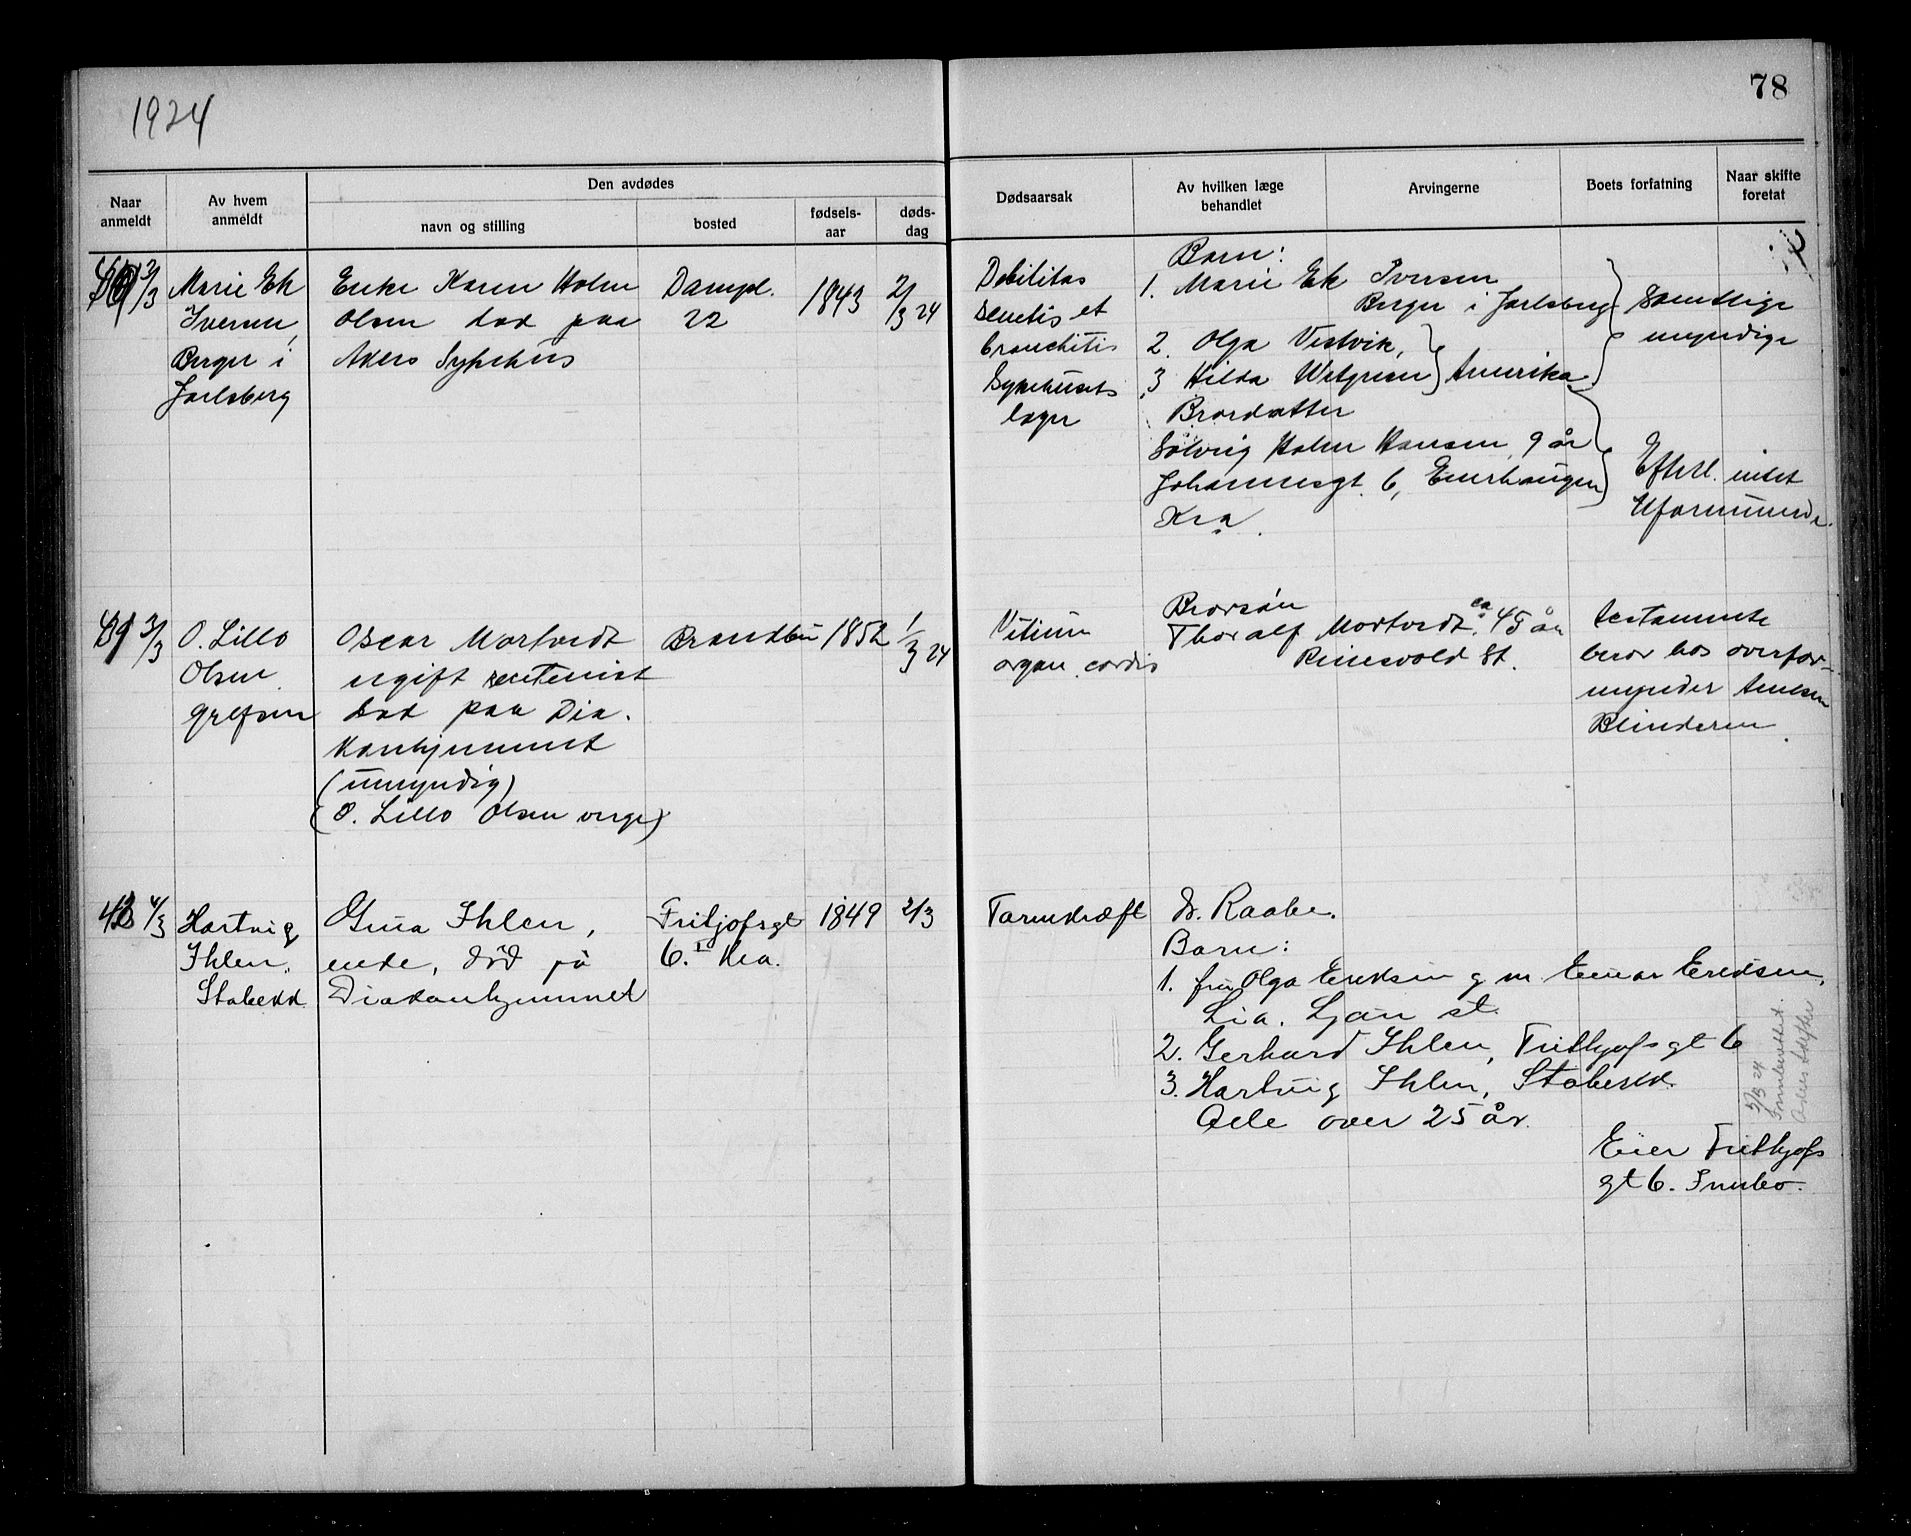 1924
78
Naar anmeldt
Av hvem anmeldt
Den avdødes
navn og stilling
bosted
fødsels-aar
døds-dag
Dødsaarsak
Av hvilken læge behandlet
Arvingerne
Boets forfatning
Naar skifte foretat
3/3
Marie Ek
Iversen,
Berger i
Jarlsberg
Enke Karen Holm
Olsen død paa
Akers Sykehus
Dampl.
22
1843
2/3 24
Debilitas
senilis et
bronchitis
Sykehusets
læger
Barn:
1. Marie Ek Iversen
Berger i Jarlsberg
2. Olga Vestvik,
3 Hilda Wetgreen } Amerika
Brordatter
Solveig Holm Hansen, 9 år
Johannesgt. 6, Enerhaugen
Kra.
Samtlige
umyndige
Efterl. intet
Uformuende.
3/3
O. Lillo
Olsen
Grefsen
Oscar Mortvedt
ugift rentenist
død paa Dia.
konhjemmet
(umyndig)
(O. Lillo Olsen verge)
Brandbu
1852
1/3 24
Vitium
organ. cordis
Brorsøn
Thoralf Mortvedt, ca. 45 år
St.
Testamente
beror hos overfor-
mynder
Blinderen.
4/3
Hartvig
Ihlen.
Stabekk
Gina Ihlen,
enke, død på
Diakonhjemmet
Fritjofsgt
6. I Kra.
1849
2/3
Tarmkræft
Dr. Raabe.
Barn:
1. fru Olga Eriksen g. m. Einar Eriksen,
Lia. Ljan st.
2. Gerhard Ihlen, Frithjofsgt 6
3. Hartvig Ihlen, Stabekk.
Alle over 25 år.
Eier Frithjofs
gt 6. Innbo.
5/3 24